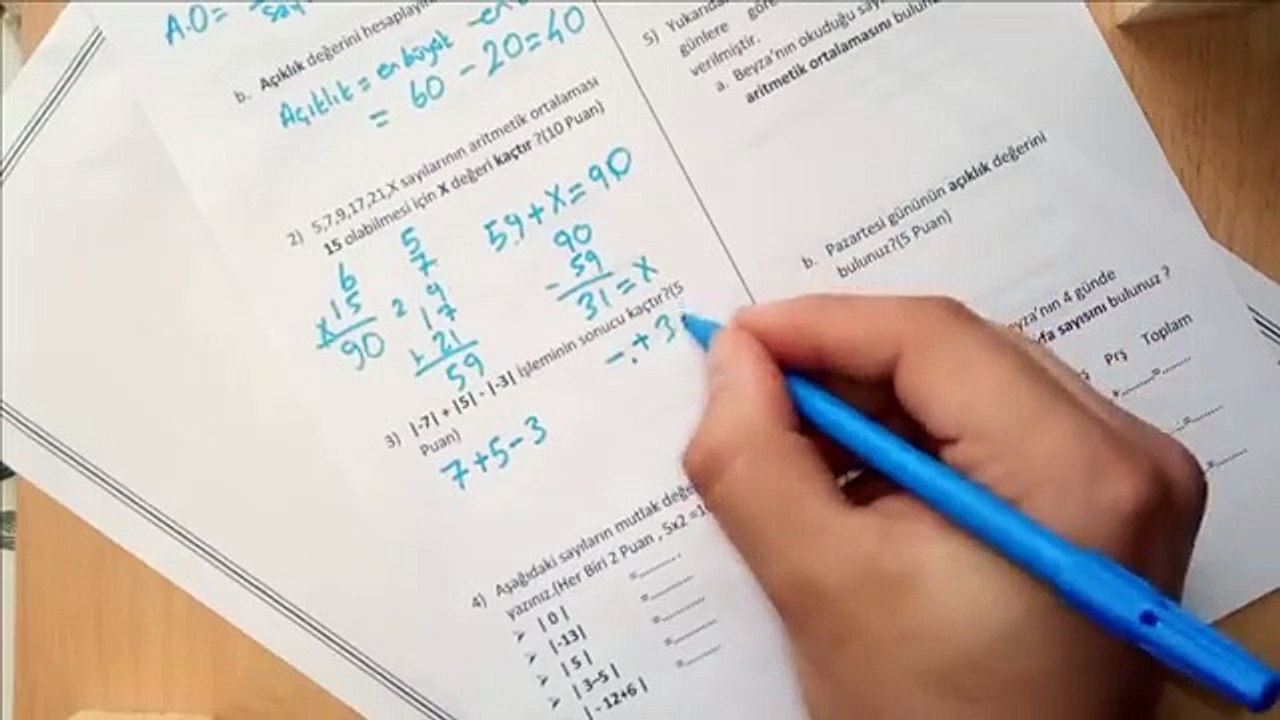 A.O=
b. Açıklık değerini hesaplayın
Açıklık = en büyük - en
= 60 - 20 = 40
2) 5,7,9,17,21,X sayılarının aritmetik ortalaması
15 olabilmesi için X değeri kaçtır ?(10 Puan)
6
x15
90
5
7
2 9
17
+ 21
59
59+X=90
90
- 59
31=X
3) |-7| + |5| - |-3| işleminin sonucu kaçtır?(5
Puan)
7+5-3
-.+ 3
4) Aşağıdaki sayıların mutlak değe
yazınız.(Her Biri 2 Puan , 5x2 =1
➢ | 0 | =.........
➢ |-13| =.........
➢ | 5 | =.........
➢ | 3-5 | =.........
| - 12+6 | =.........
5) Yukarıda
günlere göre
verilmiştir.
a. Beyza'nın okuduğu
aritmetik ortalamasını
b. Pazartesi gününün açıklık değerini
bulunuz?(5 Puan)
eyza'nın 4 günde
sayısını bulunuz ?
Prş Toplam